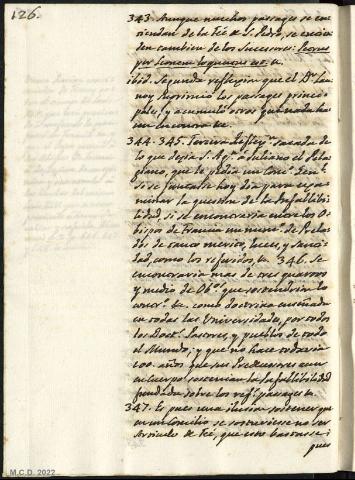 126.
343. Aunque muchos passages se en
tiendan de la Fé de S. Pedro, se extien
den tambien de los Sucesores:
por
ibid. Segunda reflexion que el Dr. Lau
noy suprimió los passages princi
pales, y acumuló otros que nada ha
cen
344. 345. Tercera Reflexn. sacada de
lo que decia S. Agn. a Juliano el Pela
giano, que le pedia un Conco.
Si se juntasse hoy dia para exa
minar la question de la Infalibili
dad, si se encontraria entre los O
bispos de Francia un numo. de Prela
dos de tanto merito, luces, y Santi
dad, como los referidos, &. 346. Se
encontraria mas de tres quartos
y medio de Obos. que sostendrian lo
contro. &. como doctrina enseñada
en todas las Universidades, por todos
los Doctes. Pastores, y pueblos de todo
el Mundo; y que no hace todavia
100. años que sus Predecesores en un
cuerpo sostenian la Infalibilidad
fundada sobre los refos. passages &.
347. Es pues una ilusion sostener que
en un Concilio se sostuviesse no ser
Articulo de Fé, que esto bastasse;
pues
M.C.D. 2022